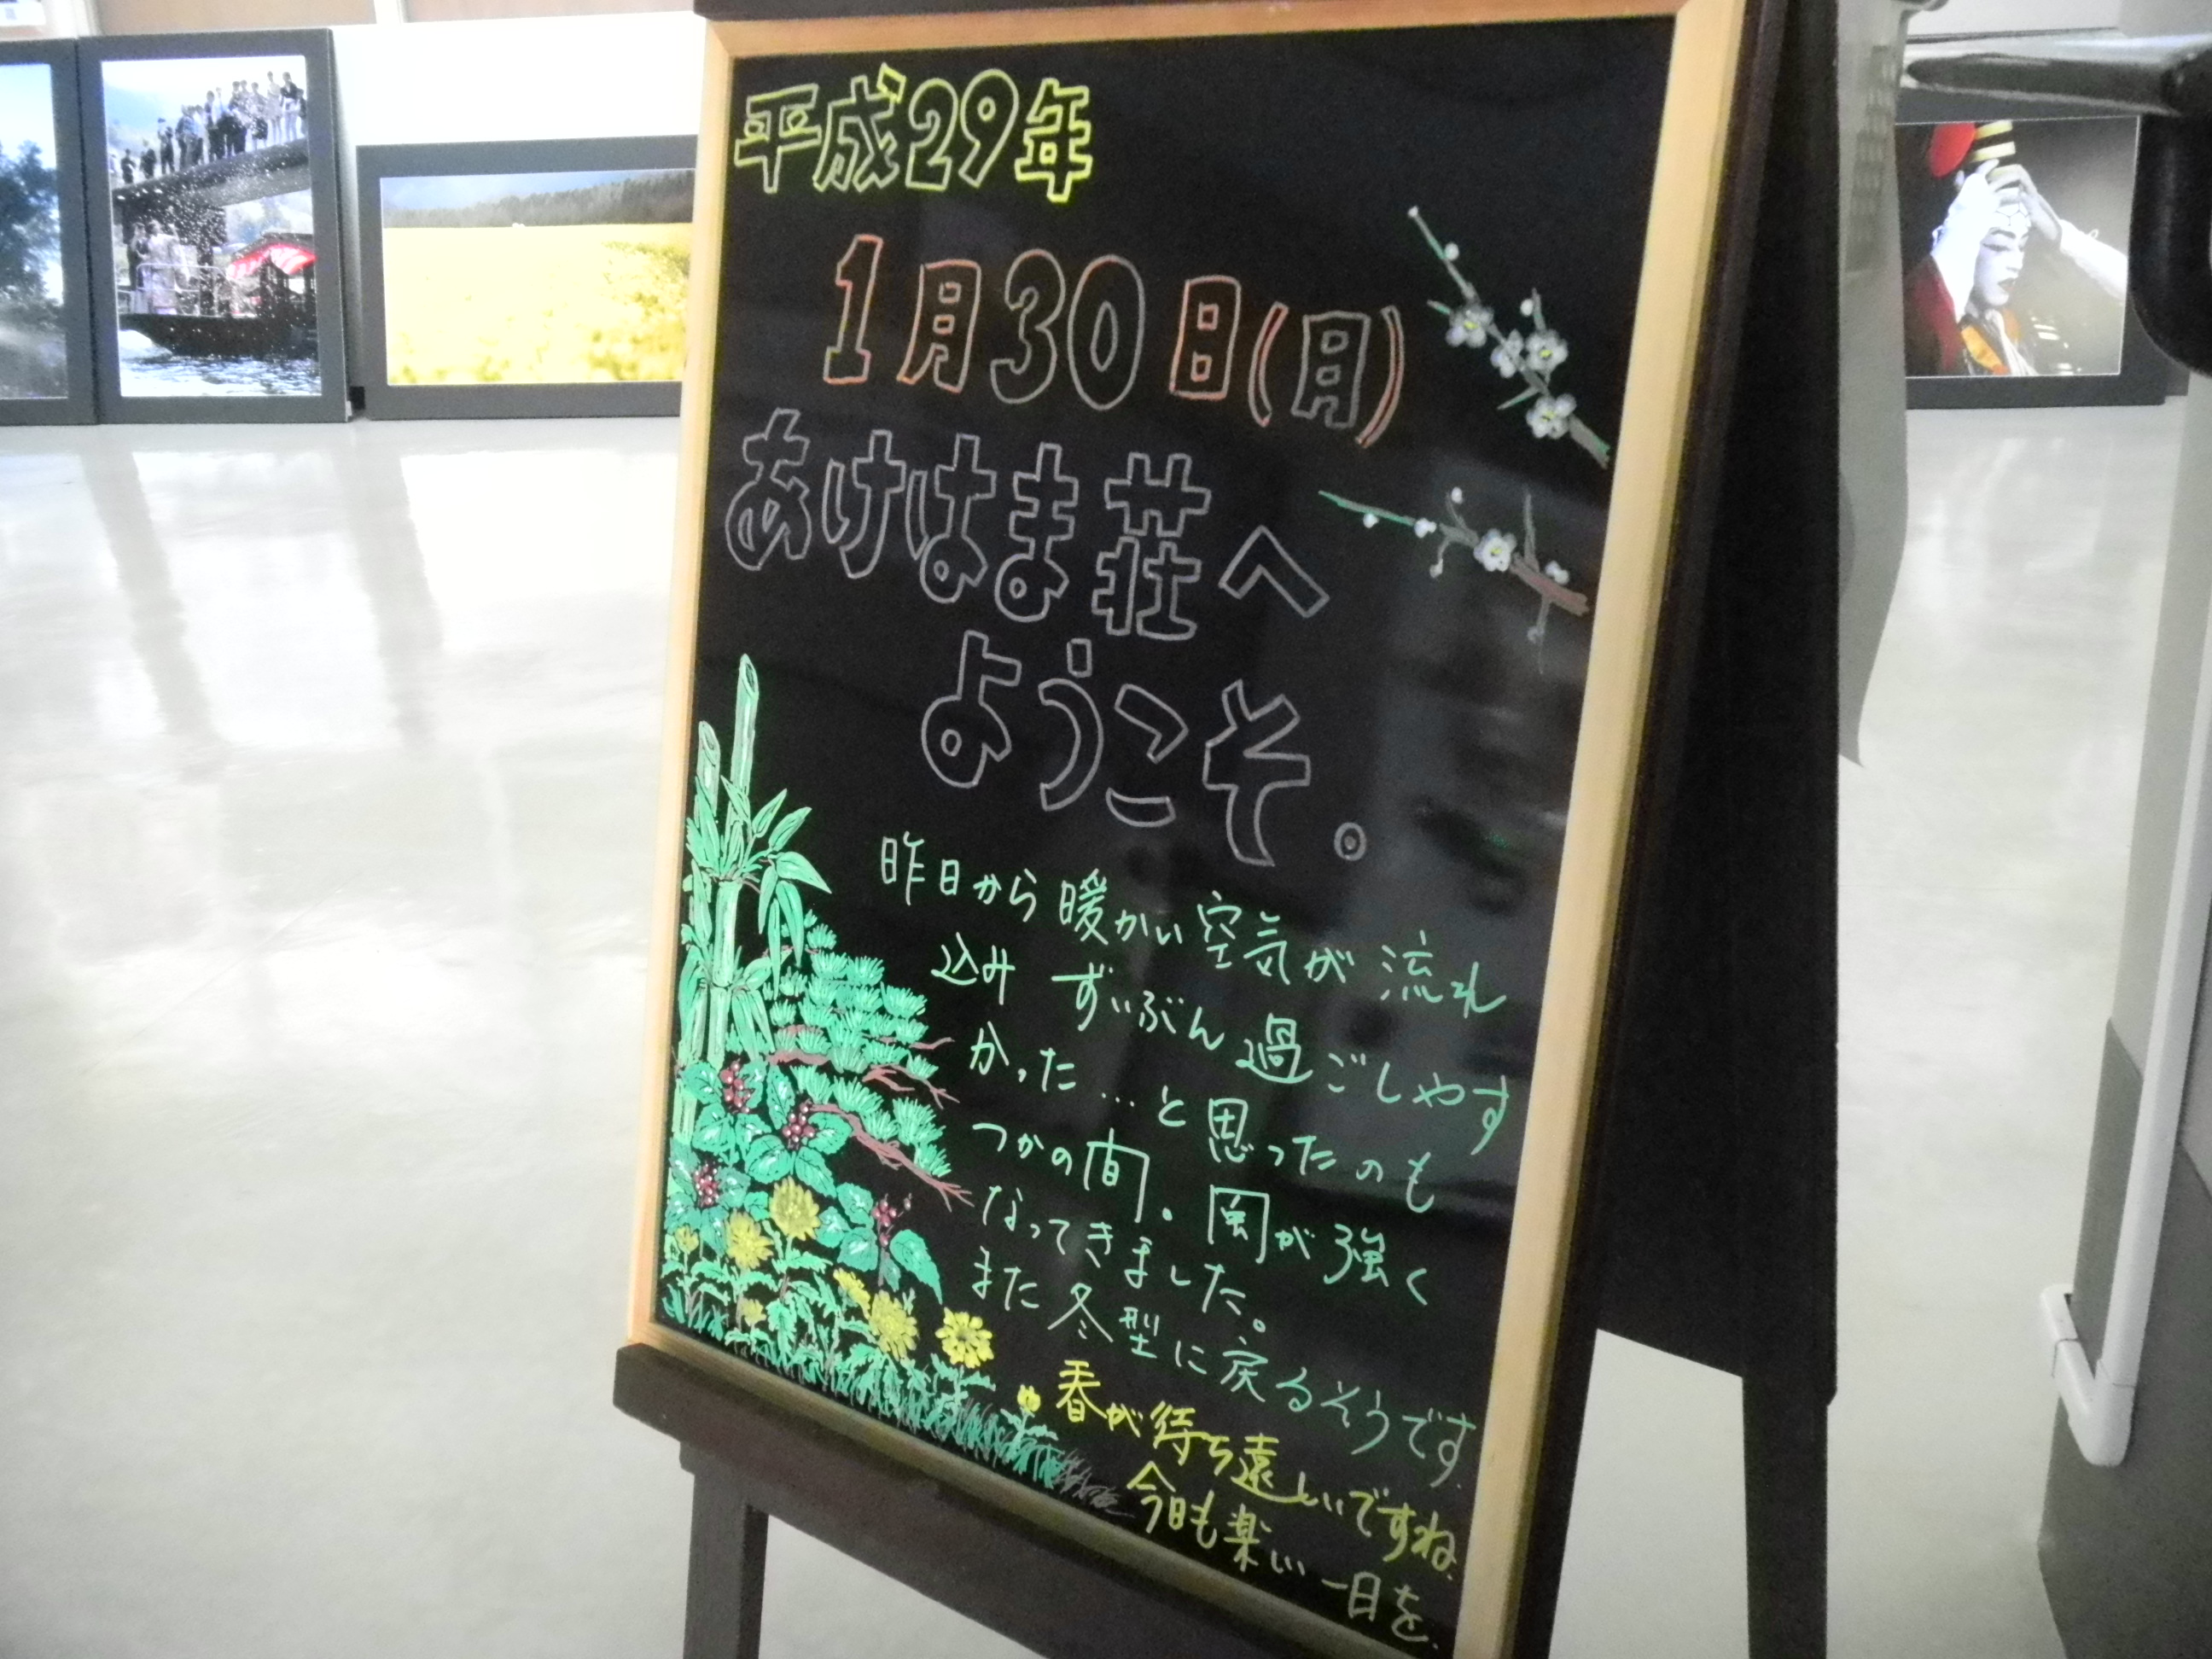 平成29年
1月30日(月)
あけはま荘へ
ようこそ。
昨日から暖かい空気が流れ
込み ずいぶん過ごしやす
かった…と思ったのも
つかの間。風が強く
なってきました。
また冬型に戻るそうです.
春が待ち遠しいですね.
今日も楽しい一日を.